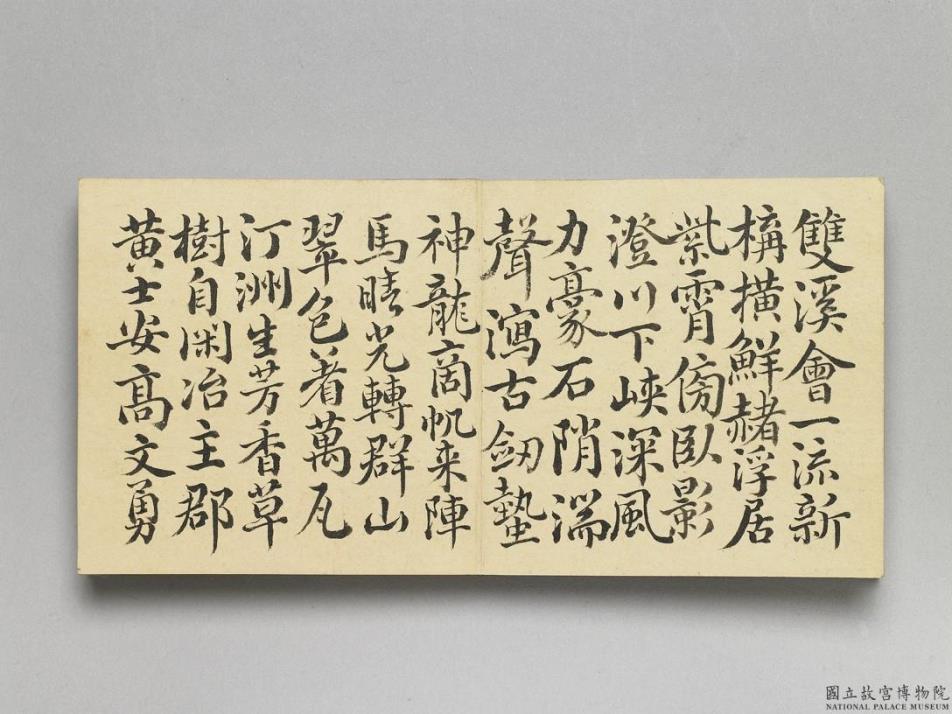 雙溪會一流新
構橫鮮赭浮居
紫霄傍臥影
澄川下峽深風
力豪石陗湍
聲瀉古劒蟄
神龍商帆来陣
馬晴光轉群山
翠色着萬瓦
汀洲生芳香草
樹自閑冶主郡
黄士安髙文勇
國立故宮博物院
NATIONAL PALACE MUSEUM